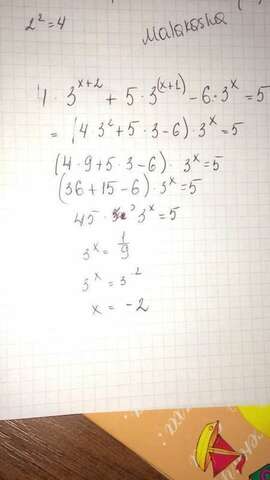 2² = 4
Malakasha
4 · 3^(x+2) + 5 · 3^(x+1) − 6 · 3^x = 5
= (4 · 3² + 5 · 3 − 6) · 3^x = 5
(4 · 9 + 5 · 3 − 6) · 3^x = 5
(36 + 15 − 6) · 3^x = 5
45 · 3^x = 5
3^x = 1/9
3^x = 3^2
x = −2